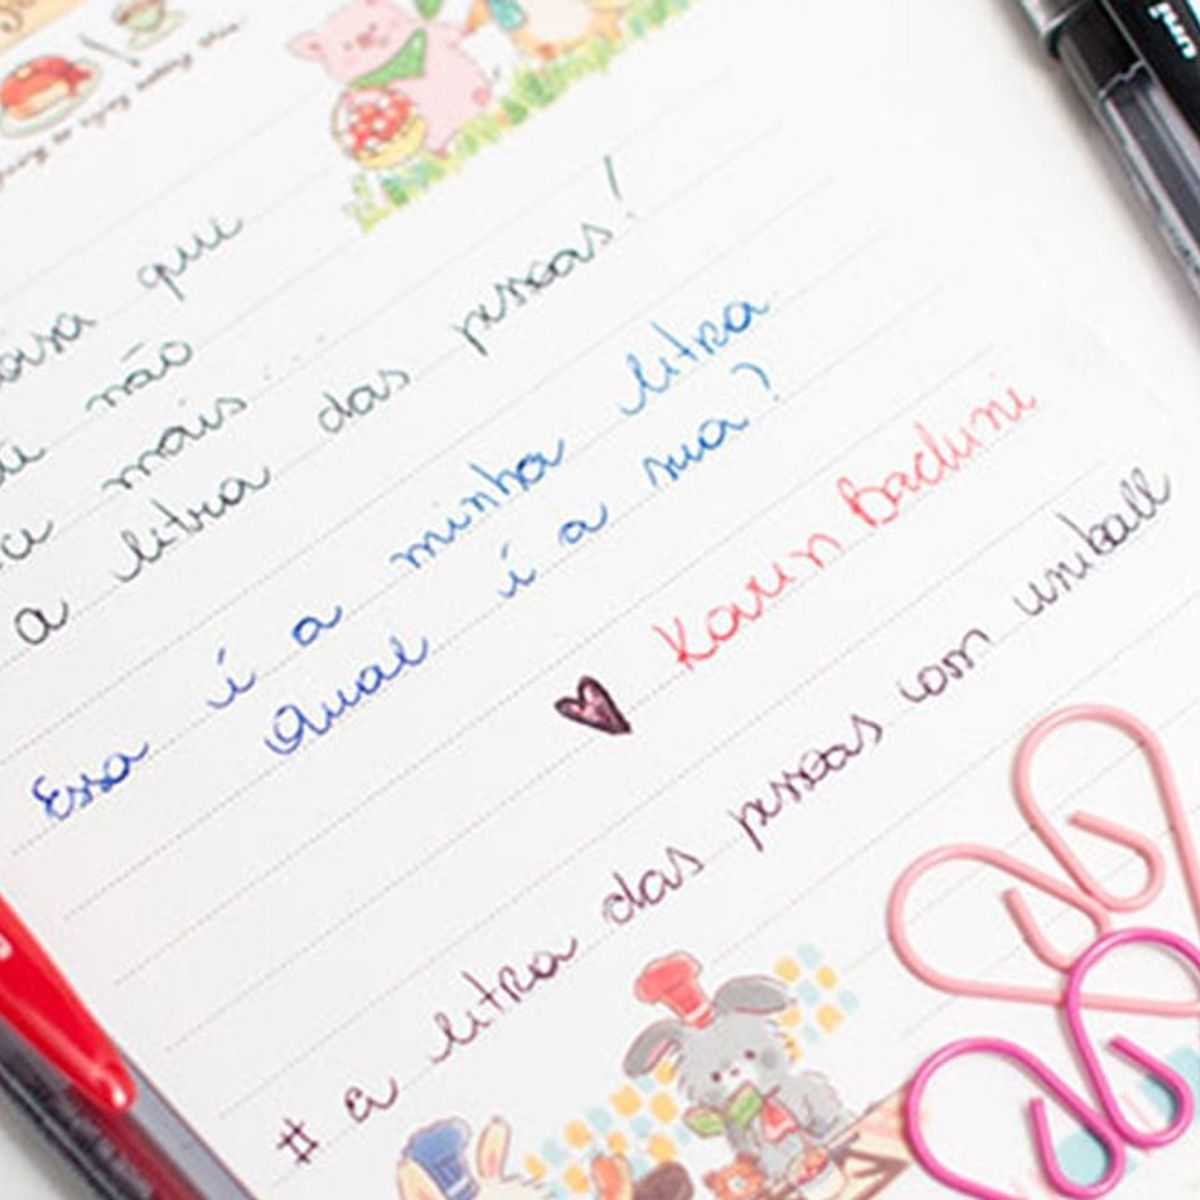 que
não
mais...
a letra das pessoas!
Essa é a minha letra
Qual é a sua?
Karin Baduni
# a letra das pessoas com uniball
uni